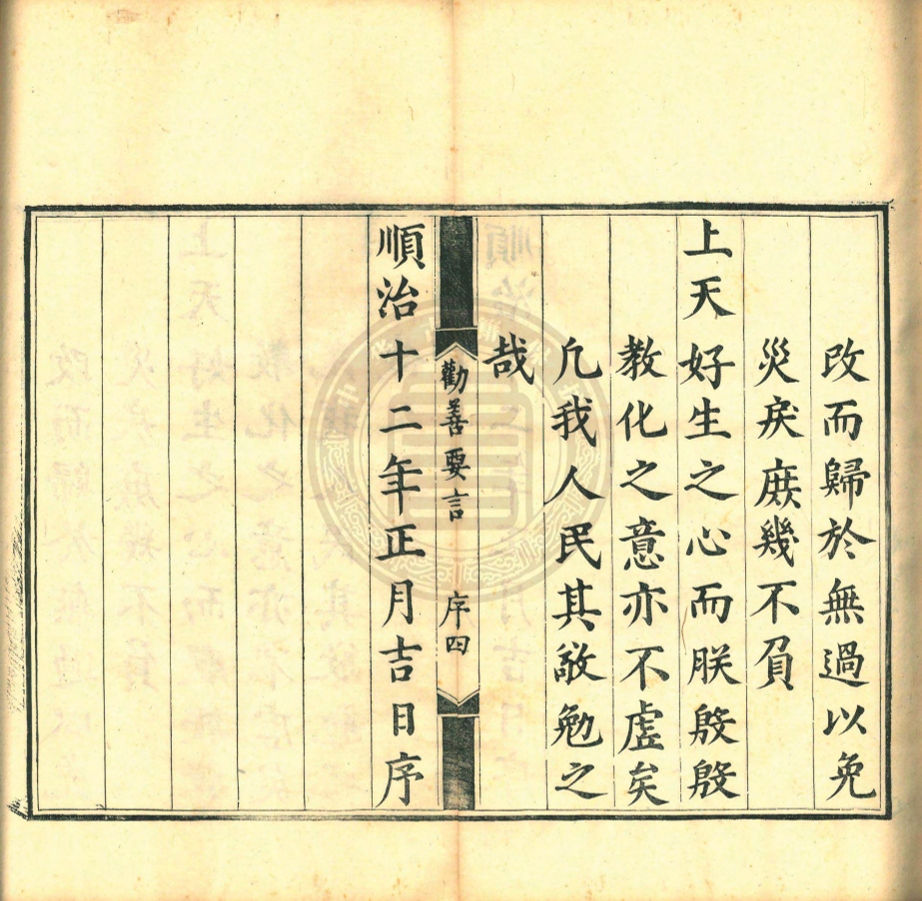 改而歸於無過以免
災戾庻幾不負
上天好生之心而朕殷殷
教化之意亦不虛矣
凢我人民其敬勉之
哉
勸善要言
序四
順治十二年正月吉日序